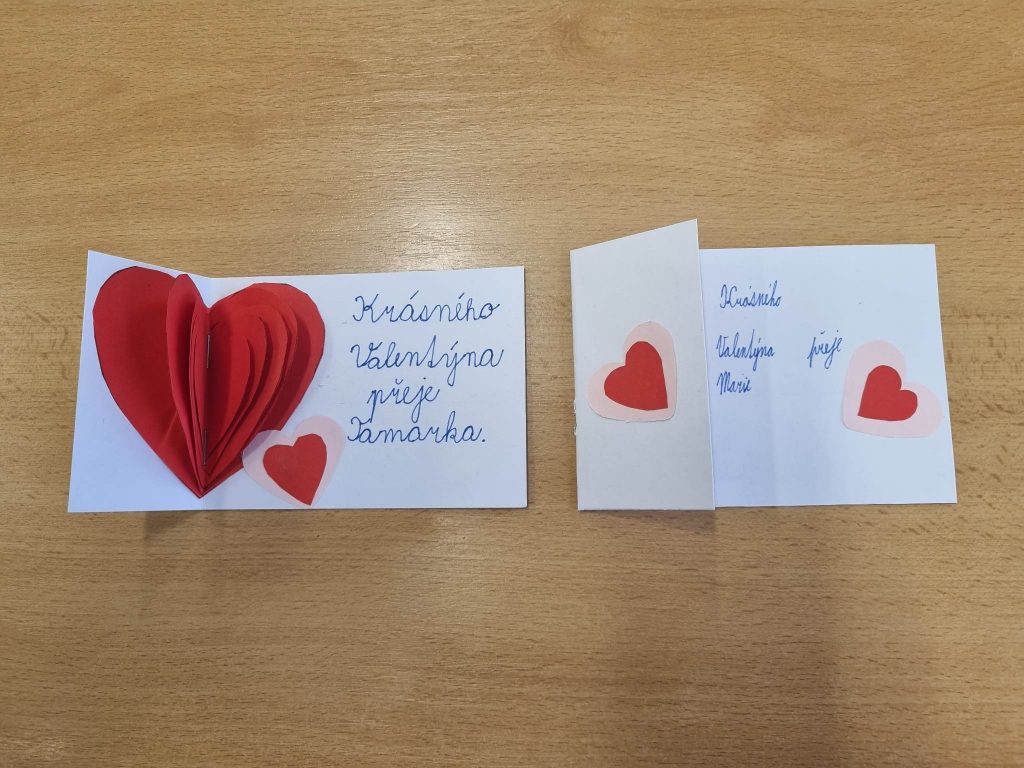 Krásného
Valentýna
přeje
Tamarka.
Krásného
Valentýna přeje
Marie